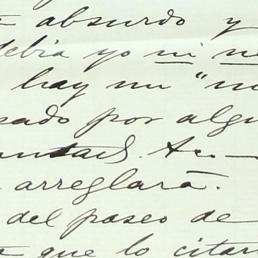 absurdo y
debia yo ni
hay un "
sado por
arreglará.
del paseo de
que lo citar